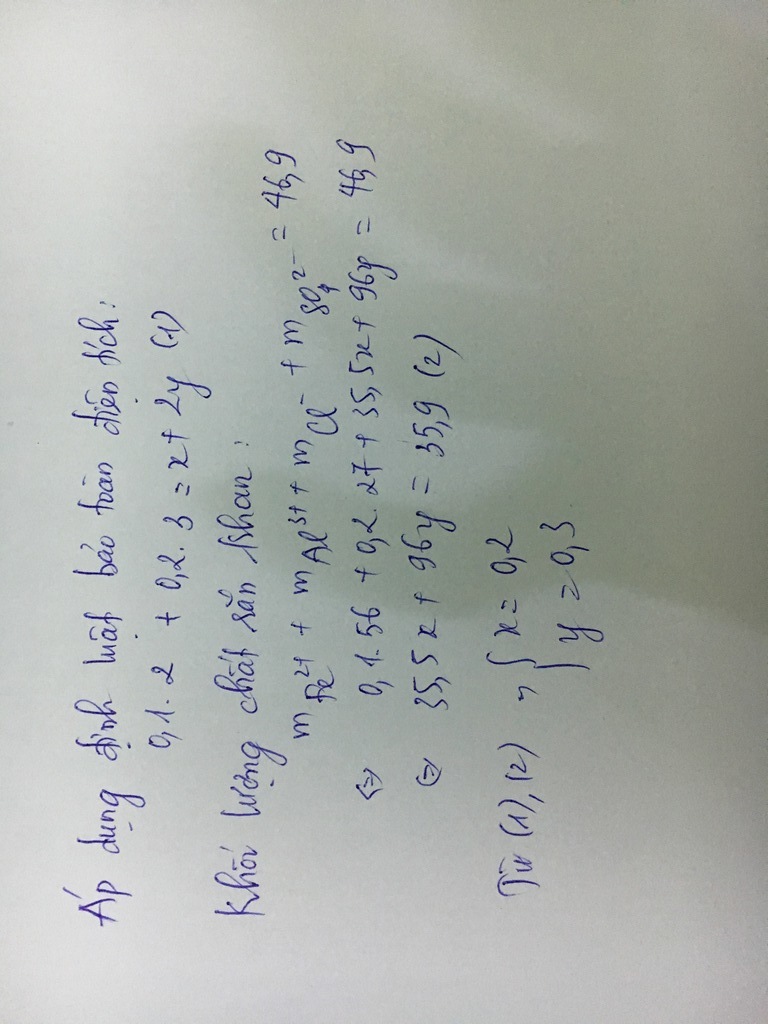 Áp dụng định luật bảo toàn điện tích:
0,1.2 + 0,2.3 = x + 2y (1)
Khối lượng chất rắn khan:
mFe²⁺ + mAl³⁺ + mCl⁻ + mSO₄²⁻ = 46,9
⇔ 0,1.56 + 0,2.27 + 35,5x + 96y = 46,9
⇔ 35,5x + 96y = 35,9 (2)
Từ (1), (2) , { x = 0,2
y = 0,3